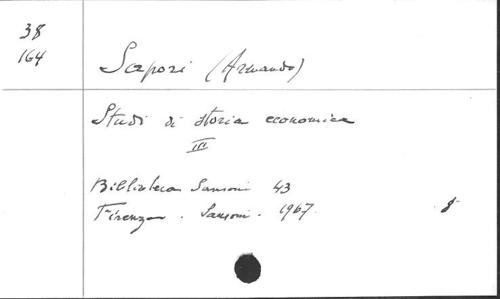 38
164
Sapori (Armando)
Studi di storia economica
III
Biblioteca Sansoni 43
Firenze. Sansoni. 1967.
8°